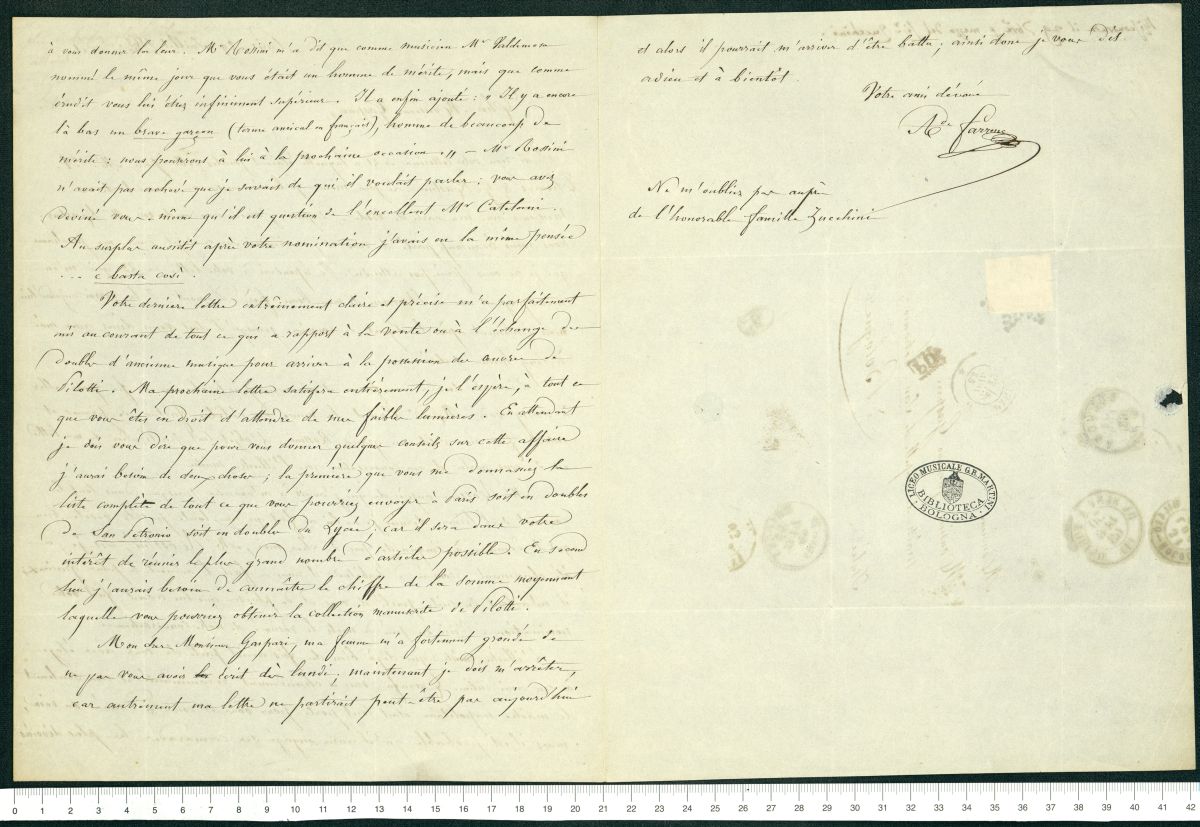 à vous donner la leur. Mr Rossini m'a dit que comme musicien Mr
nommé le même jour que vous était un homme de mérite, mais que comme
érudit vous lui étiez infiniment supérieur. Il a enfin ajouté : " Il y a encore
là bas un brave garçon (terme amical en français), homme de beaucoup de
mérite ; nous penserons à lui à la prochaine occasion. " – Mr Rossini
n'avait pas achevé que je savais de qui il voulait parler ; vous avez
deviné vous-même qu'il est question de l'excellent Mr Catelani.
Au surplus aussitôt après votre nomination j'avais eu la même pensée
... e basta così.
Votre dernière lettre extrêmement claire et précise m'a parfaitement
mis au courant de tout ce qui a rapport à la vente ou à l'échange des
doubles d'ancienne musique pour arriver à la possession des œuvres de
Pilotti. Ma prochaine lettre satisfera entièrement, je l'espère, à tout ce
que vous êtes en droit d'attendre de mes faibles lumières. En attendant
je dois vous dire que pour vous donner quelques conseils sur cette affaire
j'aurai besoin de deux choses ; la première que vous me donnassiez la
liste complète de tout ce que vous pourriez envoyer à Paris soit en doubles
de San Petronio soit en doubles du Lycée, car il sera dans votre
intérêt de réunir le plus grand nombre d'articles possible. En second
lieu j'aurais besoin de connaître le chiffre de la somme moyennant
laquelle vous pourriez obtenir la collection manuscrite de Pilotti.
Mon cher Monsieur Gaspari, ma femme m'a fortement grondé de
ne pas vous avoir écrit dès lundi ; maintenant je dois m'arrêter,
car autrement ma lettre ne partirait peut-être pas aujourd'hui
et alors il pourrait m'arriver d'être battu ; ainsi donc je vous dis
adieu et à bientôt.
Votre ami dévoué
Ade Farrenc
Ne m'oubliez pas auprès
de l'honorable famille Zucchini
LICEO MUSICALE G.B. MARTINI
BIBLIOTECA
BOLOGNA
0 1 2 3 4 5 6 7 8 9 10 11 12 13 14 15 16 17 18 19 20 21 22 23 24 25 26 27 28 29 30 31 32 33 34 35 36 37 38 39 40 41 42